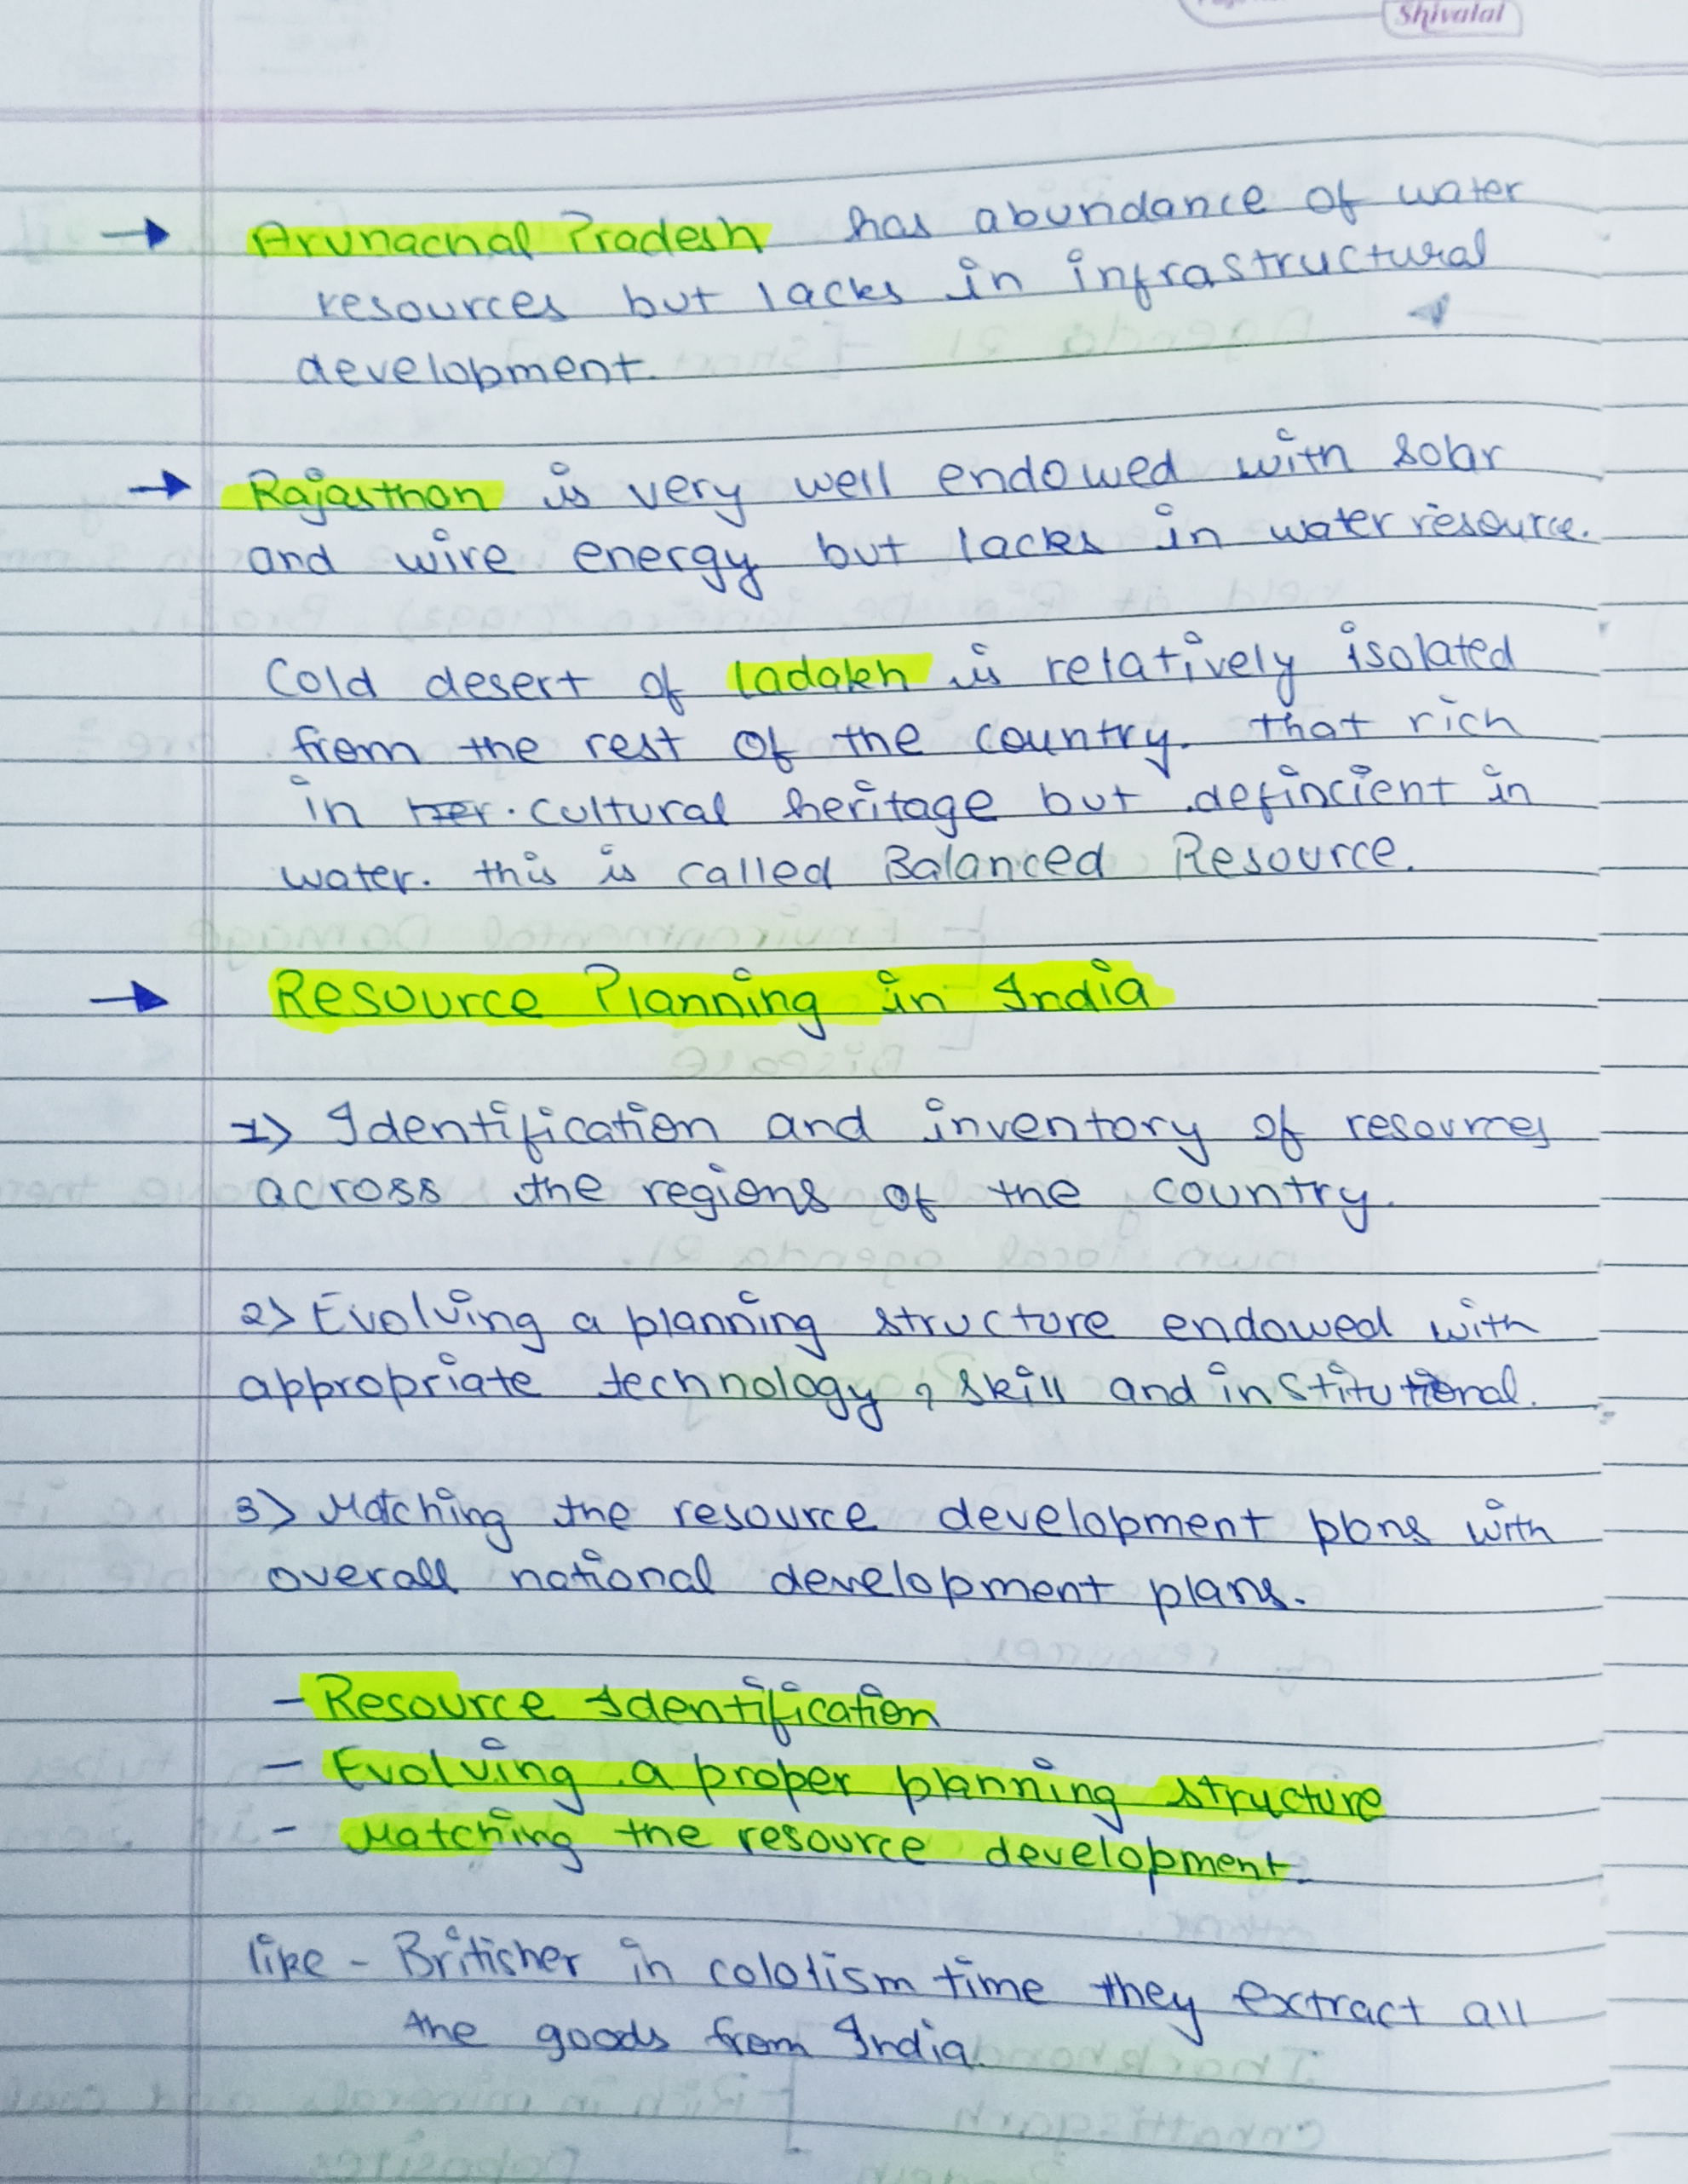 Shivalal
→ Arunachal Pradesh has abundance of water
resources but lacks in infrastructural
development.
→ Rajasthan is very well endowed with solar
and wire energy but lacks in water resource.
Cold desert of ladakh is relatively isolated
from the rest of the country. that rich
in her. cultural heritage but defincient in
water. this is called Balanced Resource.
→ Resource Planning in India
1> Identification and inventory of resources
across the regions of the country.
2> Evolving a planning structure endowed with
appropriate technology, skill and institutional.
3> Matching the resource development plans with
overall national development plans.
- Resource Identification
- Evolving a proper planning structure
- Matching the resource development.
like - Britisher in colotism time they extract all
the goods from India.